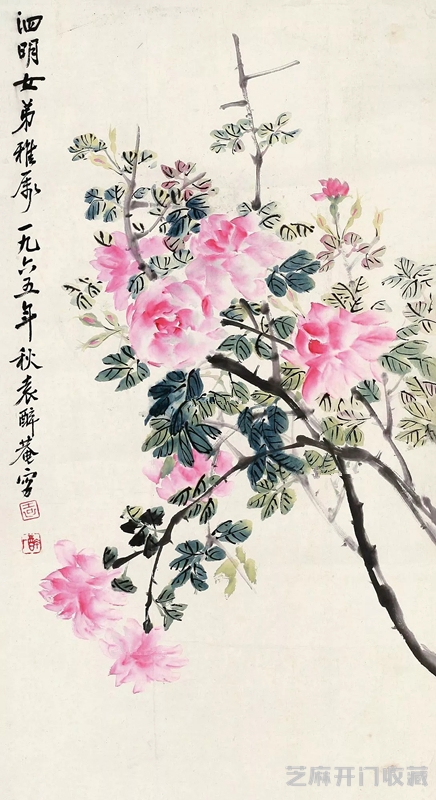 泗明女弟雅属 一九六五年秋袁醉菴写
芝麻开门收藏